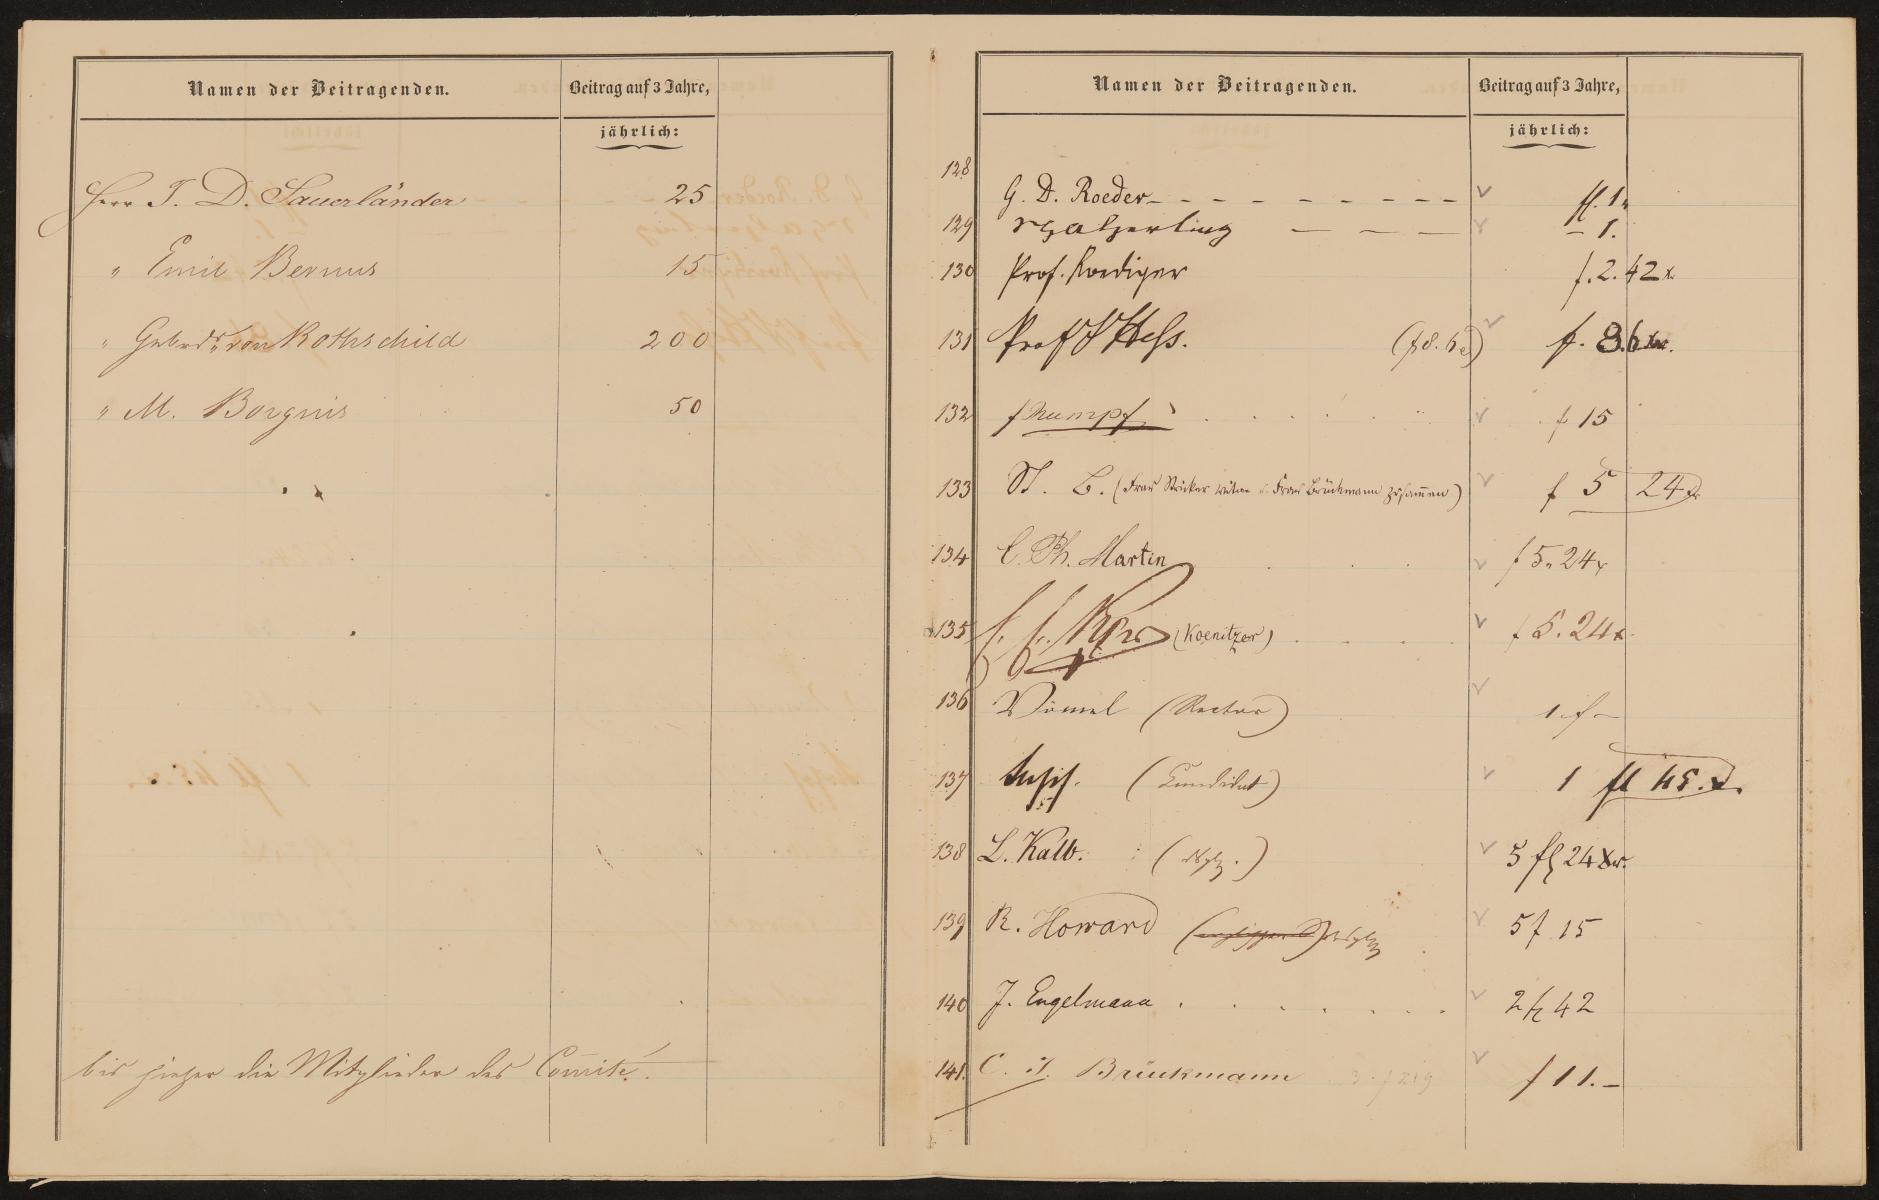 Namen der Beitragenden.
Beitrag auf 3 Jahre,
jährlich:
Herr J. D. Sauerländer 25
" Emil Bernus 15
" Gebrdr. von Rothschild 200
" M. Borgnis 50
bis hieher die Mitglieder des Comité.
Namen der Beitragenden.
Beitrag auf 3 Jahre,
jährlich:
128 G. D. Roeder fl. 1"
129 1.
130 Prof. Roediger f. 2. 42 x.
131 Prof J Hess. (f 8. 6 x) f. 8.6 xr.
132 f Rumpf f 15
133 St. B. (Frau Stricker Witwe u. Frau Brückmann zusammen) f 5 24 xr
134 C. Ph. Martin f 5" 24 x
135 (Koenitzer) f 5. 24 x.
136 Vömel (Rector) 1 f –
137 (Candidat) 1 fl 45. x.
138 L. Kalb. 5 fl 24 Xr.
139 R. Howard 5 f 15
140 J. Engelmann 2 fl 42
141. C. J. Brückmann f 11. –